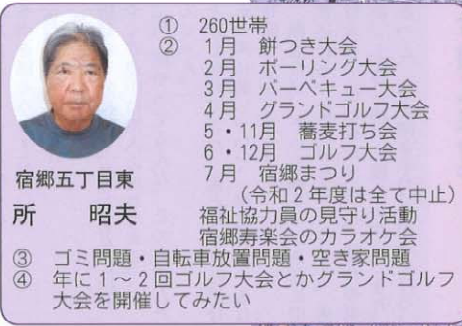 宿郷五丁目東
所 昭夫
① 260世帯
② 1月 餅つき大会
2月 ボーリング大会
3月 バーベキュー大会
4月 グランドゴルフ大会
5・11月 蕎麦打ち会
6・12月 ゴルフ大会
7月 宿郷まつり
(令和2年度は全て中止)
福祉協力員の見守り活動
宿郷寿楽会のカラオケ会
③ ゴミ問題・自転車放置問題・空き家問題
④ 年に1~2回ゴルフ大会とかグランドゴルフ
大会を開催してみたい